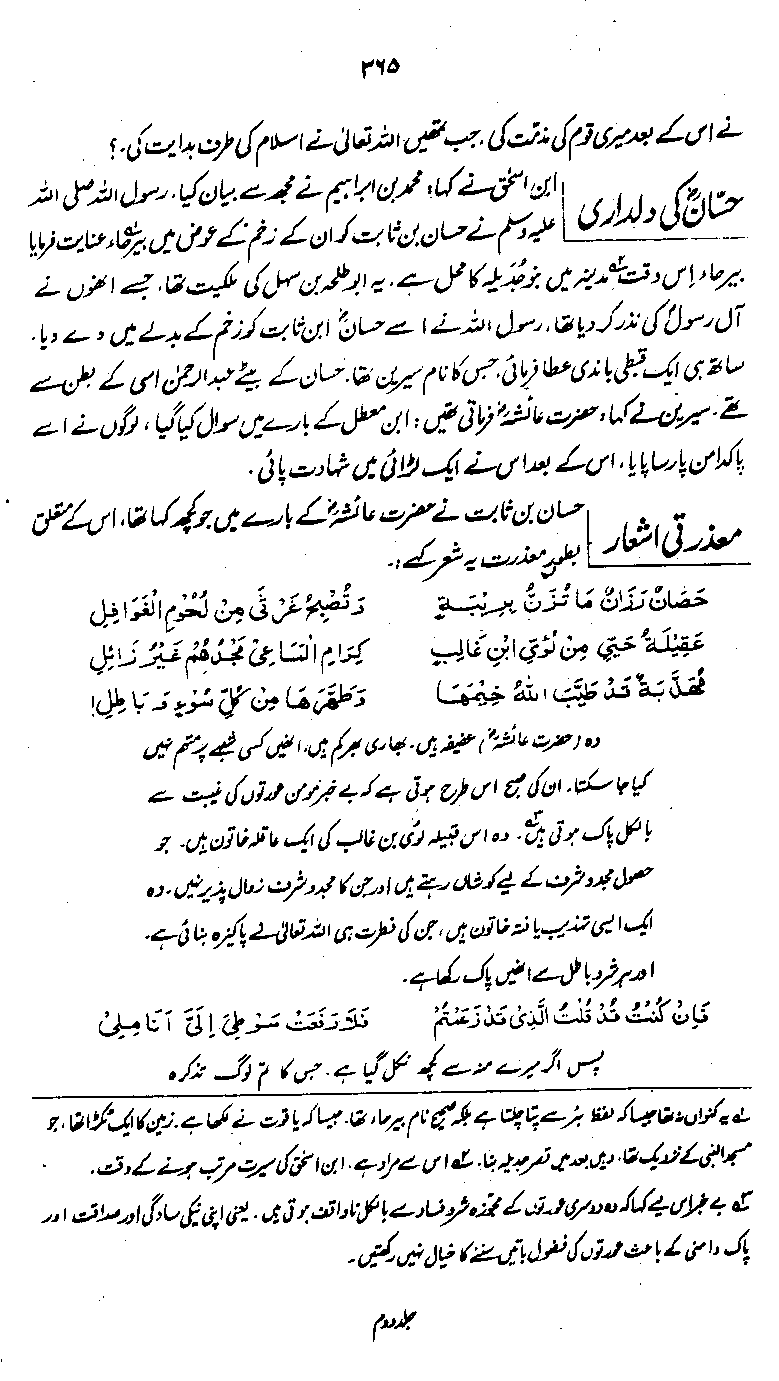 ۳۶۵
نے اس کے بعد میری قوم کی مذمت کی، جب تمھیں اللہ تعالیٰ نے اسلام کی طرف ہدایت کی۔؟
حسّانؓ کی دلداری
ابن اسحٰق نے کہا: محمد بن ابراہیم نے مجھ سے بیان کیا۔ رسول اللہ صلی اللہ
علیہ وسلم نے حسان بن ثابت کو ان کے زخم کے عوض میں بیرحاء عنایت فرمایا
بیرحاء اِس وقت مدینہ میں بنو حُدَیلہ کا محل ہے۔ یہ ابو طلحہ بن سہل کی ملکیت تھا، جسے انھوں نے
آل رسولؐ کی نذر کر دیا تھا، رسول اللہ نے اسے حسانؓ ابن ثابت کو زخم کے بدلے میں دے دیا۔
ساتھ ہی ایک قبطی باندی عطا فرمائی، جس کا نام سیرین تھا۔ حسان کے بیٹے عبدالرحمٰن اسی کے بطن سے
تھے۔ سیرین نے کہا، حضرت عائشہؓ فرماتی تھیں: ابن معطل کے بارے میں سوال کیا گیا، لوگوں نے اسے
پاکدامن پارسا پایا، اس کے بعد اس نے ایک لڑائی میں شہادت پائی۔
معذرتی اشعار
حسان بن ثابت نے حضرت عائشہؓ کے بارے میں جو کچھ کہا تھا، اس کے متعلق
بطورِ معذرت یہ شعر کہے:۔
حَصَانٌ رَزَانٌ مَا تُزَنُّ بِرِیْبَةٍ وَتُصْبِحُ غَرْثٰی مِنْ لُحُوْمِ الْغَوَافِلِ
عَقِیْلَةُ حَیٍّ مِنْ لُؤَیِّ ابْنِ غَالِبٍ کِرَامِ الْمَسَاعِیْ مَجْدُهُمْ غَیْرُ زَائِلِ
مُهَذَّبَةٌ قَدْ طَیَّبَ اللهُ خِیْمَهَا وَطَهَّرَهَا مِنْ کُلِّ سُوْءٍ وَّ بَاطِلِ!
وہ (حضرت عائشہؓ) عفیفہ ہیں۔ بھاری بھرکم ہیں، انھیں کسی شبہے پر متہم نہیں
کیا جا سکتا۔ ان کی صبح اس طرح ہوتی ہے کہ بے خبر مومن عورتوں کی غیبت سے
بالکل پاک ہوتی ہیں۳؎۔ وہ اس قبیلہ لوئی بن غالب کی ایک عاقلہ خاتون ہیں۔ جو
حصول مجد و شرف کے لیے کوشاں رہتے ہیں اور جن کا مجد و شرف زوال پذیر نہیں۔ وہ
ایک ایسی تہذیب یافتہ خاتون ہیں، جن کی فطرت ہی اللہ تعالیٰ نے پاکیزہ بنائی ہے۔
اور ہر شر و باطل سے انھیں پاک رکھا ہے۔
فَاِنْ کُنْتُ قَدْ قُلْتُ الَّذِیْ قَدْ زَعَمْتُمْ فَلَا رَفَعَتْ سَوْطِیْ اِلَیَّ اَنَامِلِیْ
پس اگر میرے منہ سے کچھ نکل گیا ہے، جس کا تم لوگ تذکرہ
۱؎ یہ کنواں نہ تھا جیسا کہ لفظ بئر سے پتا چلتا ہے بلکہ صحیح نام بیرحاء تھا۔ جیسا کہ یاقوت نے لکھا ہے۔ زمین کا ایک ٹکڑا تھا، جو
مسجد النبی کے نزدیک تھا، وہیں بعد میں قصر حدیلہ بنا۔ ۲؎ اس سے مراد ہے۔ ابن اسحٰق کی سیرت مرتب ہونے کے وقت۔
۳؎ بے خبر اس لیے کہا کہ وہ دوسری عورتوں کے مجوّزہ شر و فساد سے بالکل ناواقف ہوتی ہیں۔ یعنی اپنی نیکی سادگی اور صداقت اور
پاک دامنی کے باعث عورتوں کی فضول باتیں سننے کا خیال نہیں رکھتیں۔
جلد دوم